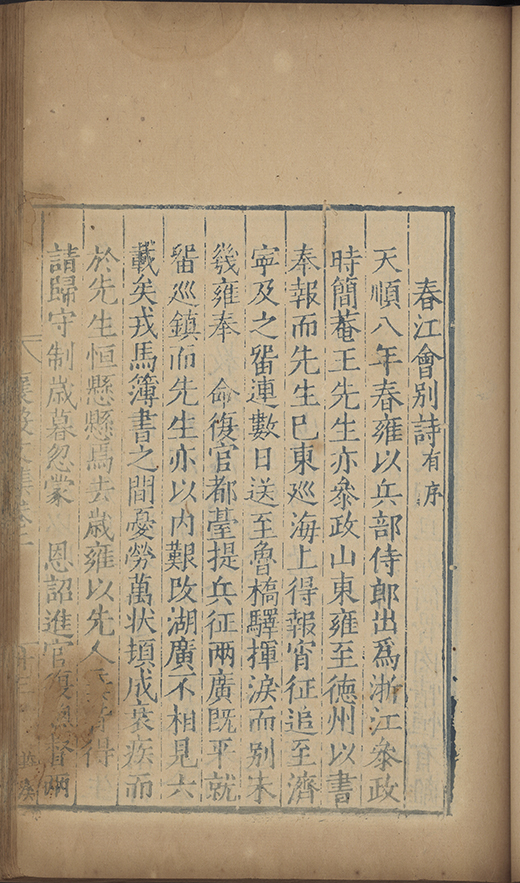 春江會別詩有序
天順八年春雍以兵部侍郎出爲浙江叅政
時簡菴王先生亦叅政山東雍至德州以書
奉報而先生已東廵海上得報宵征追至濟
寧及之畱連數日送至魯橋驛揮淚而別未
幾雍奉　命復官都臺提兵征兩廣旣平就
畱廵鎮而先生亦以内艱改湖廣不相見六
載矣戎馬簿書之間憂勞萬狀填成衰疾而
於先生恒懸懸焉去歲雍以先人得
請歸守制歲暮忽蒙　恩詔進官復兩
襄毅文集卷二